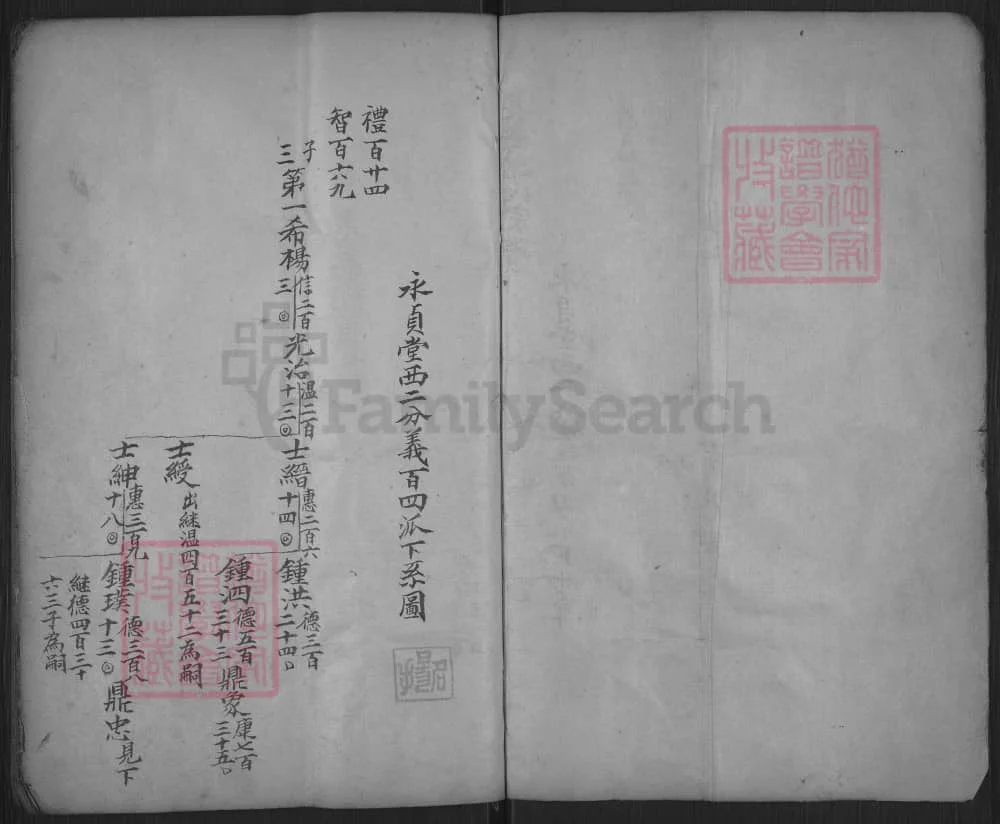 譜學會
特藏
永貞堂西二分義百四派下系圖
禮百廿四
智百六九
子三 第一希楊 信二百三 光治 温二百十三 士縉 惠二百六十四 鍾洪 德三百二十四
鍾泗 德五百三十三 鼎家 康七百三十五
士綬 出継温四百五十二為嗣
士紳 惠三百九十八 鍾璞 德三百八十三 鼎忠 見下
継德四百三十六三子為嗣
FamilySearch